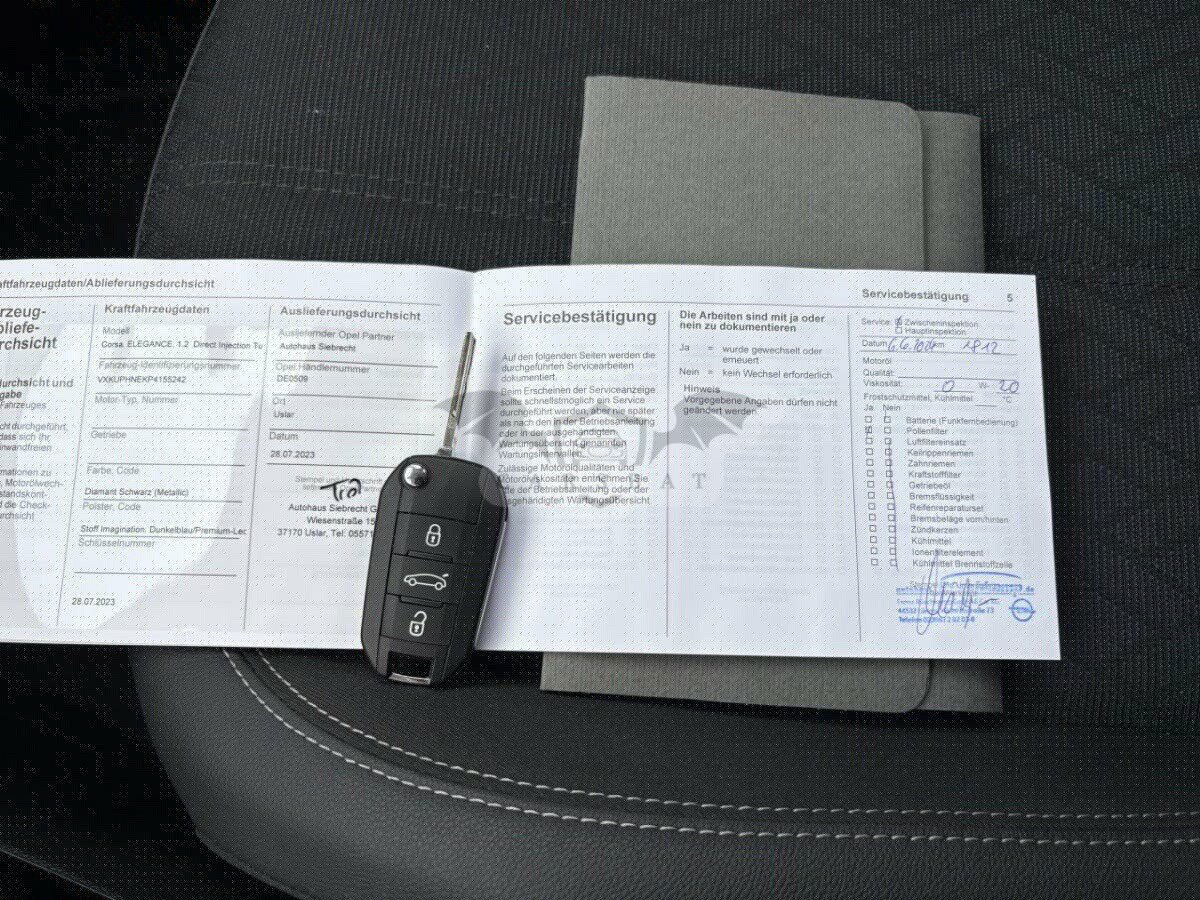 aftfahrzeugdaten/Ablieferungsdurchsicht
rzeug-
bliefe-
rchsicht
durchsicht und
gabe
Fahrzeuges
cht durchgeführt,
dass sich Ihr
inwandfreien
mationen zu
Motorölwech-
standskont-
d die Check-
rchsicht
Kraftfahrzeugdaten
Modell
Corsa, ELEGANCE, 1.2 Direct Injection Tu
Fahrzeug-Identifizierungsnummer
VXKUPHNEKP4155242
Motor-Typ, Nummer
Getriebe
Farbe, Code
Diamant Schwarz (Metallic)
Polster, Code
Stoff Imagination, Dunkelblau/Premium-Lec
Schlüsselnummer
28.07.2023
Auslieferungsdurchsicht
Ausliefernder Opel Partner
Autohaus Siebrecht
Opel Händlernummer
DE0509
Ort
Uslar
Datum
28.07.2023
Autohaus Siebrecht G
Wiesenstraße 15
37170 Uslar, Tel: 05571
Servicebestätigung 5
Servicebestätigung
Auf den folgenden Seiten werden die
durchgeführten Servicearbeiten
dokumentiert.
Beim Erscheinen der Serviceanzeige
sollte schnellstmöglich ein Service
durchgeführt werden, aber nie später
als nach den in der Betriebsanleitung
oder in der ausgehändigten
Wartungsübersicht genannten
Wartungsintervallen.
Zulässige Motorölqualitäten und
Motorölviskositäten entnehmen Sie
der Betriebsanleitung oder der
ausgehändigten Wartungsübersicht.
Die Arbeiten sind mit ja oder
nein zu dokumentieren
Ja = wurde gewechselt oder
erneuert
Nein = kein Wechsel erforderlich
Hinweis
Vorgegebene Angaben dürfen nicht
geändert werden.
Service: Zwischeninspektion
Hauptinspektion
Datum km 1812
Motoröl
Qualität:
Viskosität: 0 W- 20
Frostschutzmittel, Kühlmittel °C
Ja Nein
Batterie (Funkfernbedienung)
Pollenfilter
Luftfiltereinsatz
Keilrippenriemen
Zahnriemen
Kraftstofffilter
Getriebeöl
Bremsflüssigkeit
Reifenreparaturset
Bremsbeläge vorn/hinten
Zündkerzen
Kühlmittel
Ionenfilterelement
Kühlmittel Brennstoffzelle